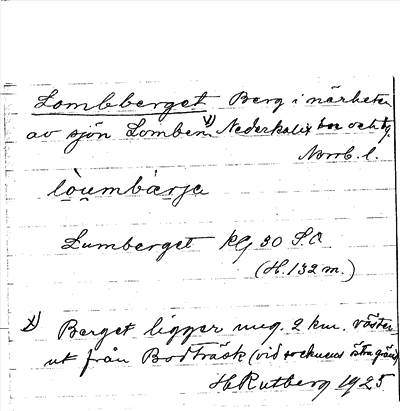 Lombberget Berg i närheten
av sjön Lomben x) Nederkalix sn och tg.
Norrb. l.
lòu̯mbærjə
Lumberget kg 30 S.O
(H. 132 m.)
x) Berget ligger ung. 2 km. väster
ut från Bodträsk (vid socknens östra gräns)
H Rutberg 1925